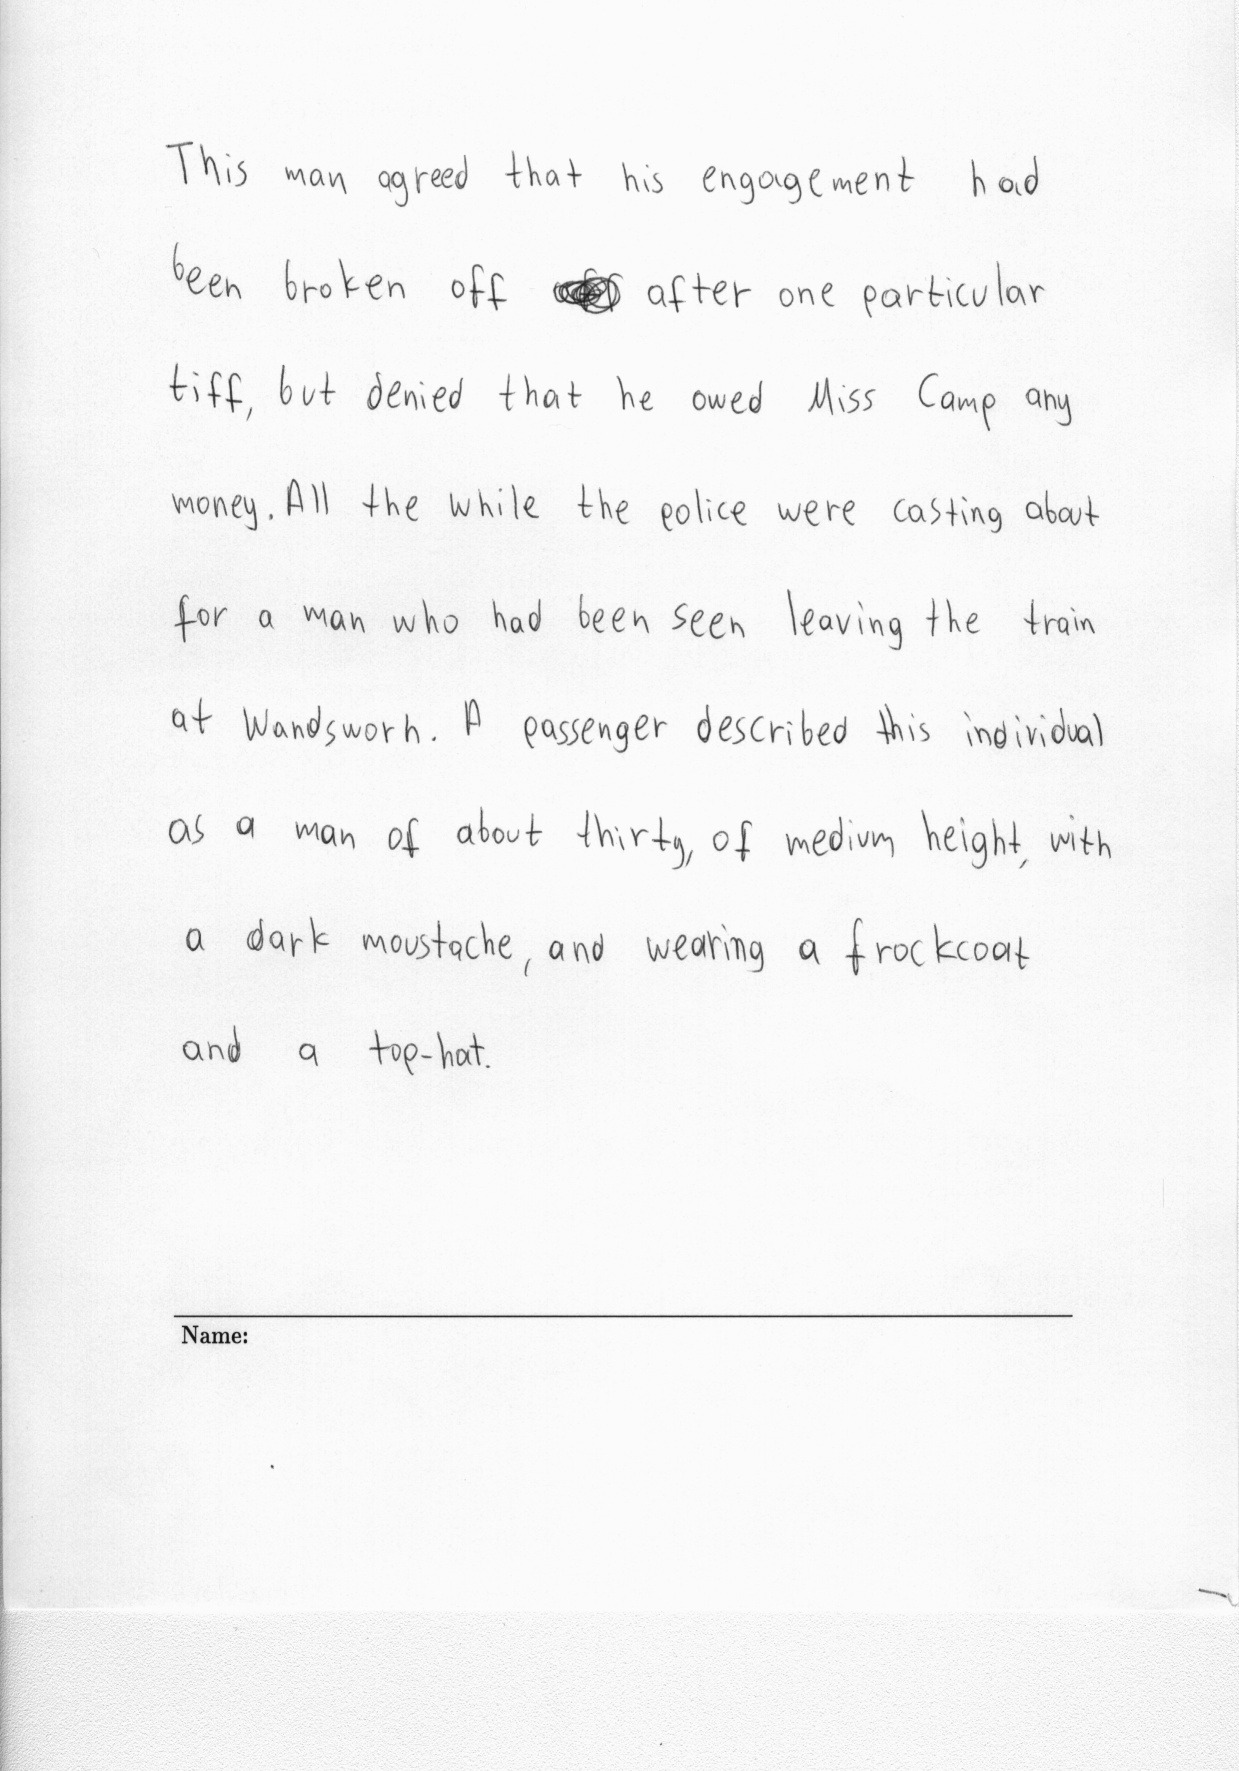 This man agreed that his engagement had
been broken off after one particular
tiff, but denied that he owed Miss Camp any
money. All the while the police were casting about
for a man who had been seen leaving the train
at Wandsworh. A passenger described this individual
as a man of about thirty, of medium height, with
a dark moustache, and wearing a frockcoat
and a top-hat.
Name: